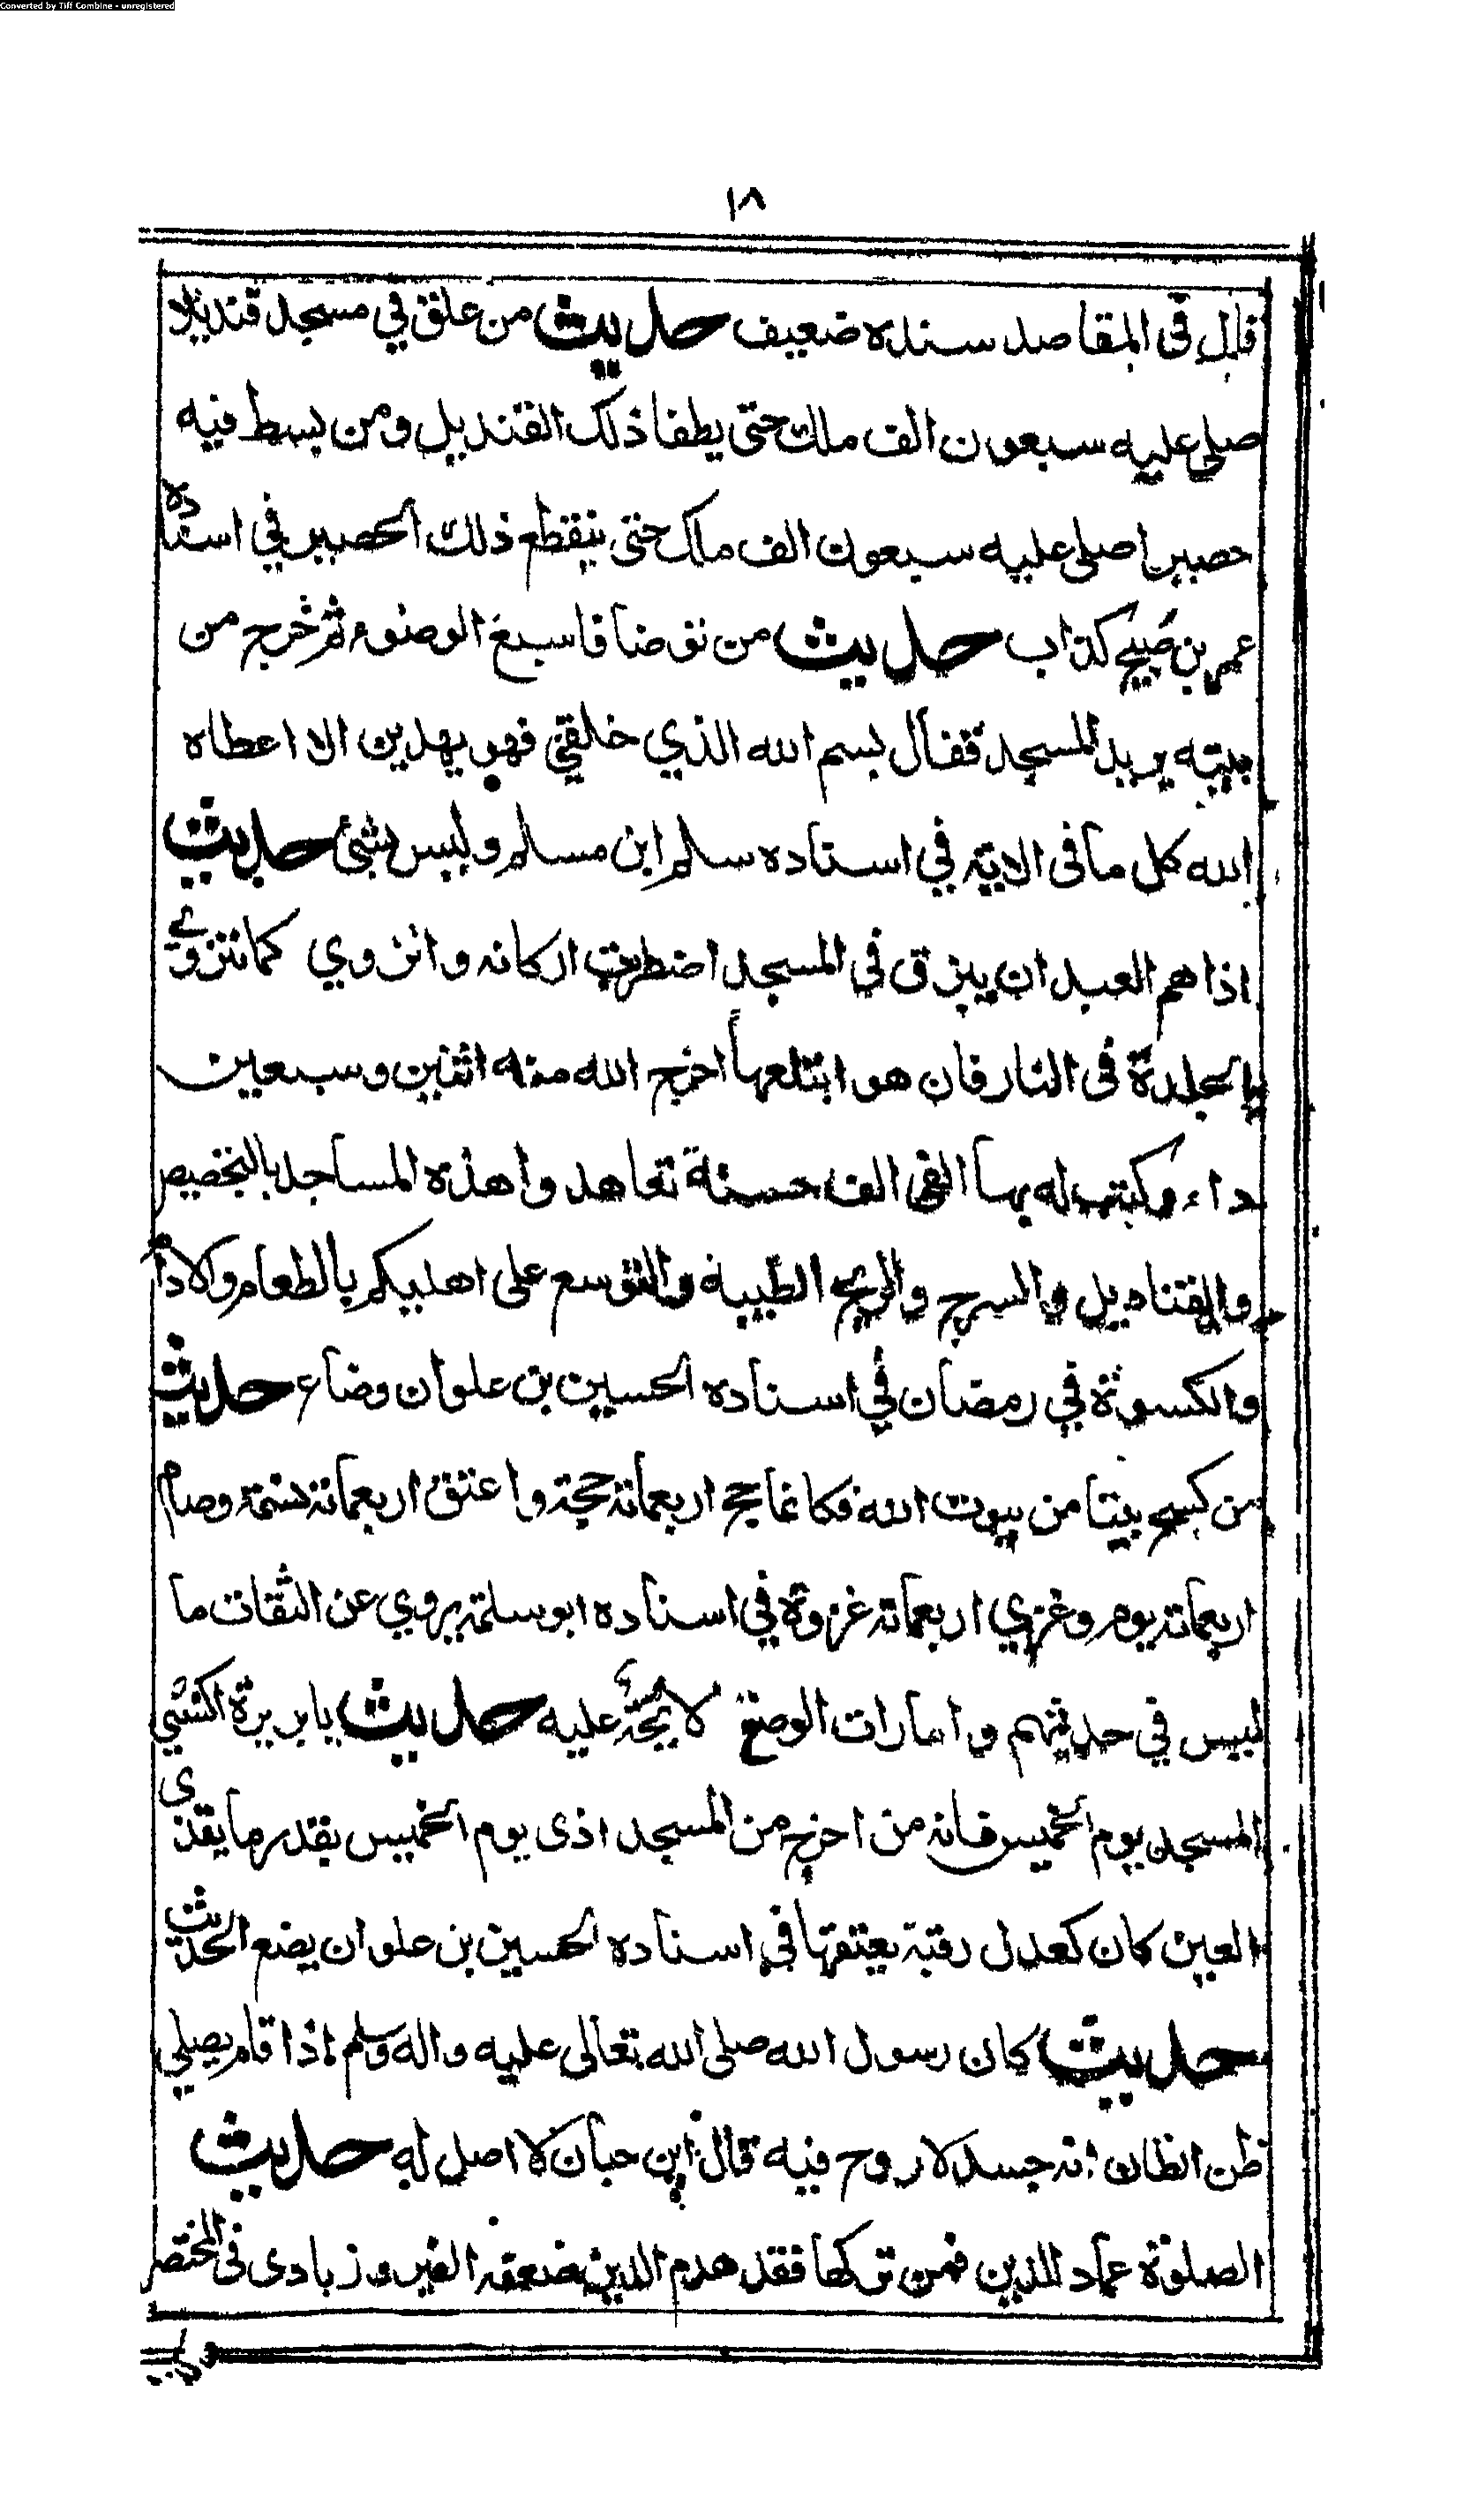 Converted by Tiff Combine - unregistered
١٨
قال في المقاصد سنده ضعيف حديث من علق في مسجد قنديلا
صلى عليه سبعون الف ملك حتى يطفا ذلك القنديل ومن بسط فيه
حصيرا صلى عليه سبعون الف ملك حتى ينقطع ذلك الحصير في اسناده
عمر بن صبيح كذاب حديث من توضا فاسبغ الوضوء ثم خرج من
بيته يريد المسجد فقال بسم الله الذي خلقني فهو يهدين الا اعطاه
الله كل ما في الاية في اسناده سالم ابن مسالم وليس بشئ حديث
اذا هم العبد ان يبزق في المسجد اضطربت اركانه وانزوي كما تنزوي
الجلدة في النار فان هو ابتلعها اخرج الله منه اثنين وسبعين
داء وكتب له بها الفي الف حسنة تعاهدوا هذه المساجد بالتجصيص
والقناديل والسرج والريح الطيبة والتوسع على اهليكم بالطعام والادام
والكسوة في رمضان في اسناده الحسين بن علوان وضاع حديث
من كسي بيتا من بيوت الله فكانما حج اربعمائة حجة واعتق اربعمائة نسمة وصام
اربعمائة يوم وغزي اربعمائة غزوة في اسناده ابو سلمة يروي عن الثقات ما
ليس في حديثهم وامارات الوضع لائحة عليه حديث يا بريرة اكنسي
المسجد يوم الخميس فانه من اخرج من المسجد اذى يوم الخميس بقدر ما يقذي
العين كان كعدل رقبة يعتقها في اسناده الحسين بن علوان يضع الحديث
حديث كان رسول الله صلى الله تعالى عليه واله وسلم اذا قام يصلي
ظن الظان انه جسد لا روح فيه قال ابن حبان لا اصل له حديث
الصلوة عماد الدين فمن تركها فقد هدم الدين ضعفه الفيروز بادى فى المختصر